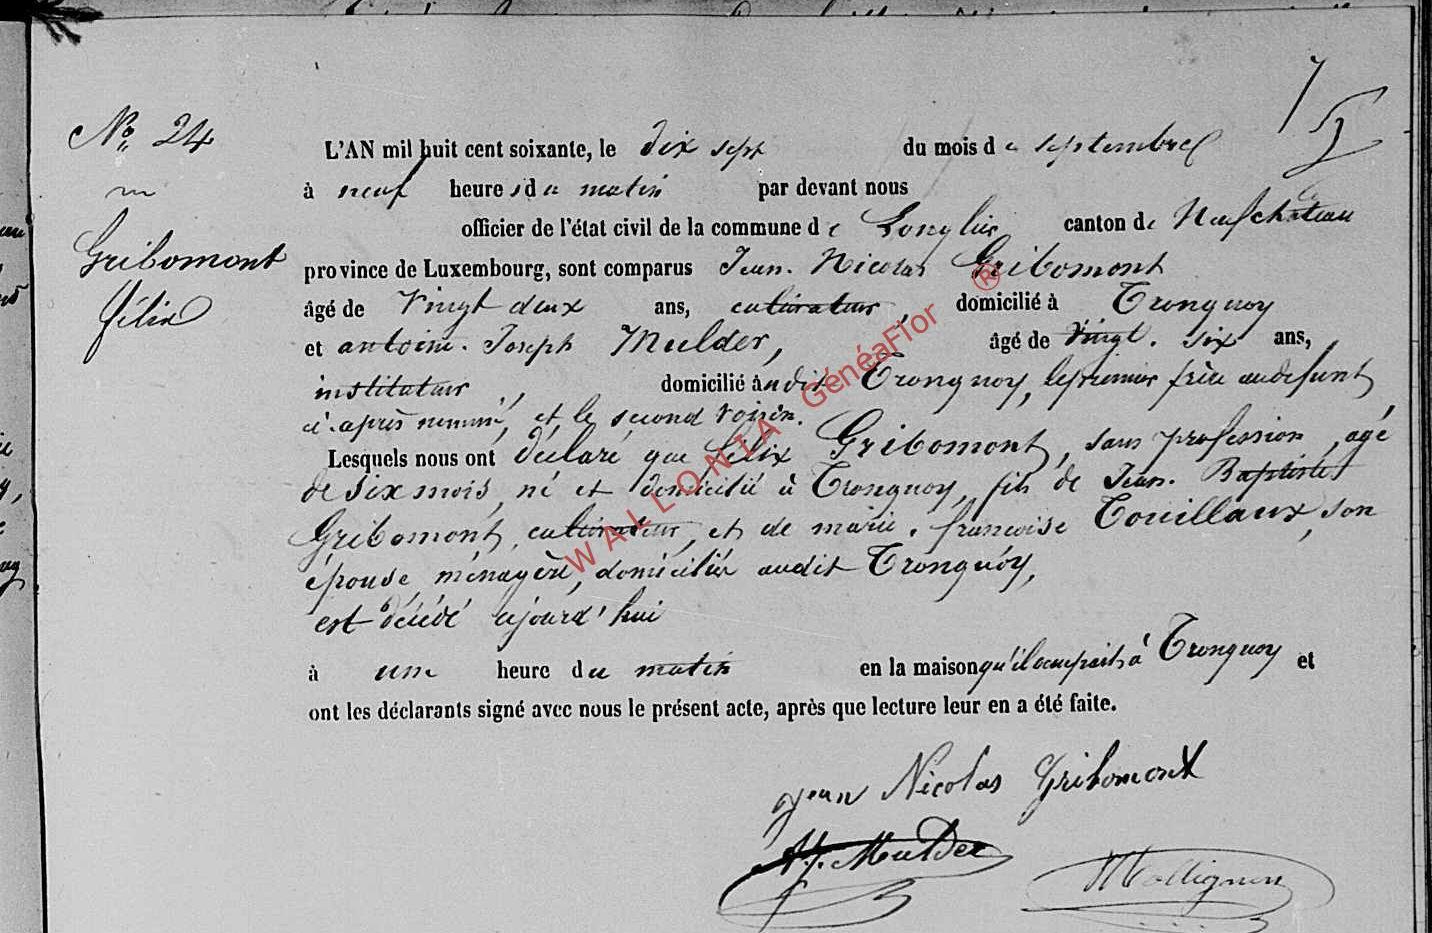 N° 24
Gribomont
félix
L'AN mil huit cent soixante, le dix sept du mois de septembre
à neuf heures du matin par devant nous
officier de l'état civil de la commune de Longlier canton de Neufchateau
province de Luxembourg, sont comparus Jean. Nicolas Gribomont
âgé de Vingt deux ans, cultivateur, domicilié à Tronquoy
et antoine. Joseph Mulder, âgé de Vingt. six ans,
instituteur, domicilié audit Tronquoy, le premier frère au defunt
ci-après nommé, et le second voisin.
Lesquels nous ont déclaré que félix Gribomont, sans profession, agé
de six mois, né et domicilié à Tronquoy, fils de Jean. Baptiste
Gribomont, cultivateur, et de marie. francoise Touillaux, son
épouse, ménagère, domiciliés audit Tronquoy,
est décédé ajourd'hui
à une heure du matin en la maison qu'il occupait à Tronquoy et
ont les déclarants signé avec nous le présent acte, après que lecture leur en a été faite.
jean Nicolas Gribomont
A. J. Mulder
WALLONIA GénéaFlor ®